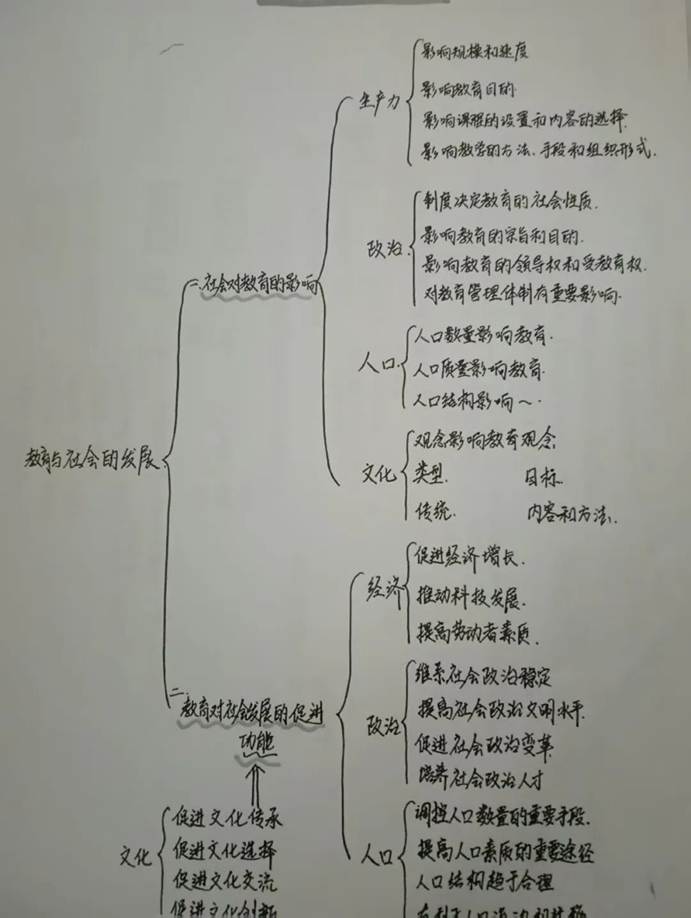 教育与社会的发展
一、社会对教育的影响
生产力
影响规模和速度
影响教育目的.
影响课程的设置和内容的选择.
影响教学的方法、手段和组织形式.
政治.
制度决定教育的社会性质.
影响教育的宗旨和目的.
影响教育的领导权和受教育权.
对教育管理体制有重要影响.
人口.
人口数量影响教育.
人口质量影响教育.
人口结构影响~.
文化
观念影响教育观念.
类型. 目标.
传统. 内容和方法.
二、教育对社会发展的促进
功能
经济
促进经济增长.
推动科技发展.
提高劳动者素质.
政治
维系社会政治稳定
提高社会政治文明水平.
促进社会政治变革.
培养社会政治人才
人口
调控人口数量的重要手段.
提高人口素质的重要途径
人口结构趋于合理
文化
促进文化传承
促进文化选择
促进文化交流
促进文化创新